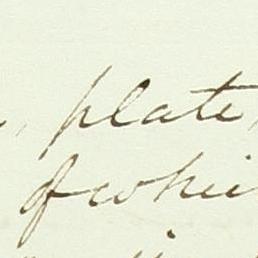 , plate,
of whi